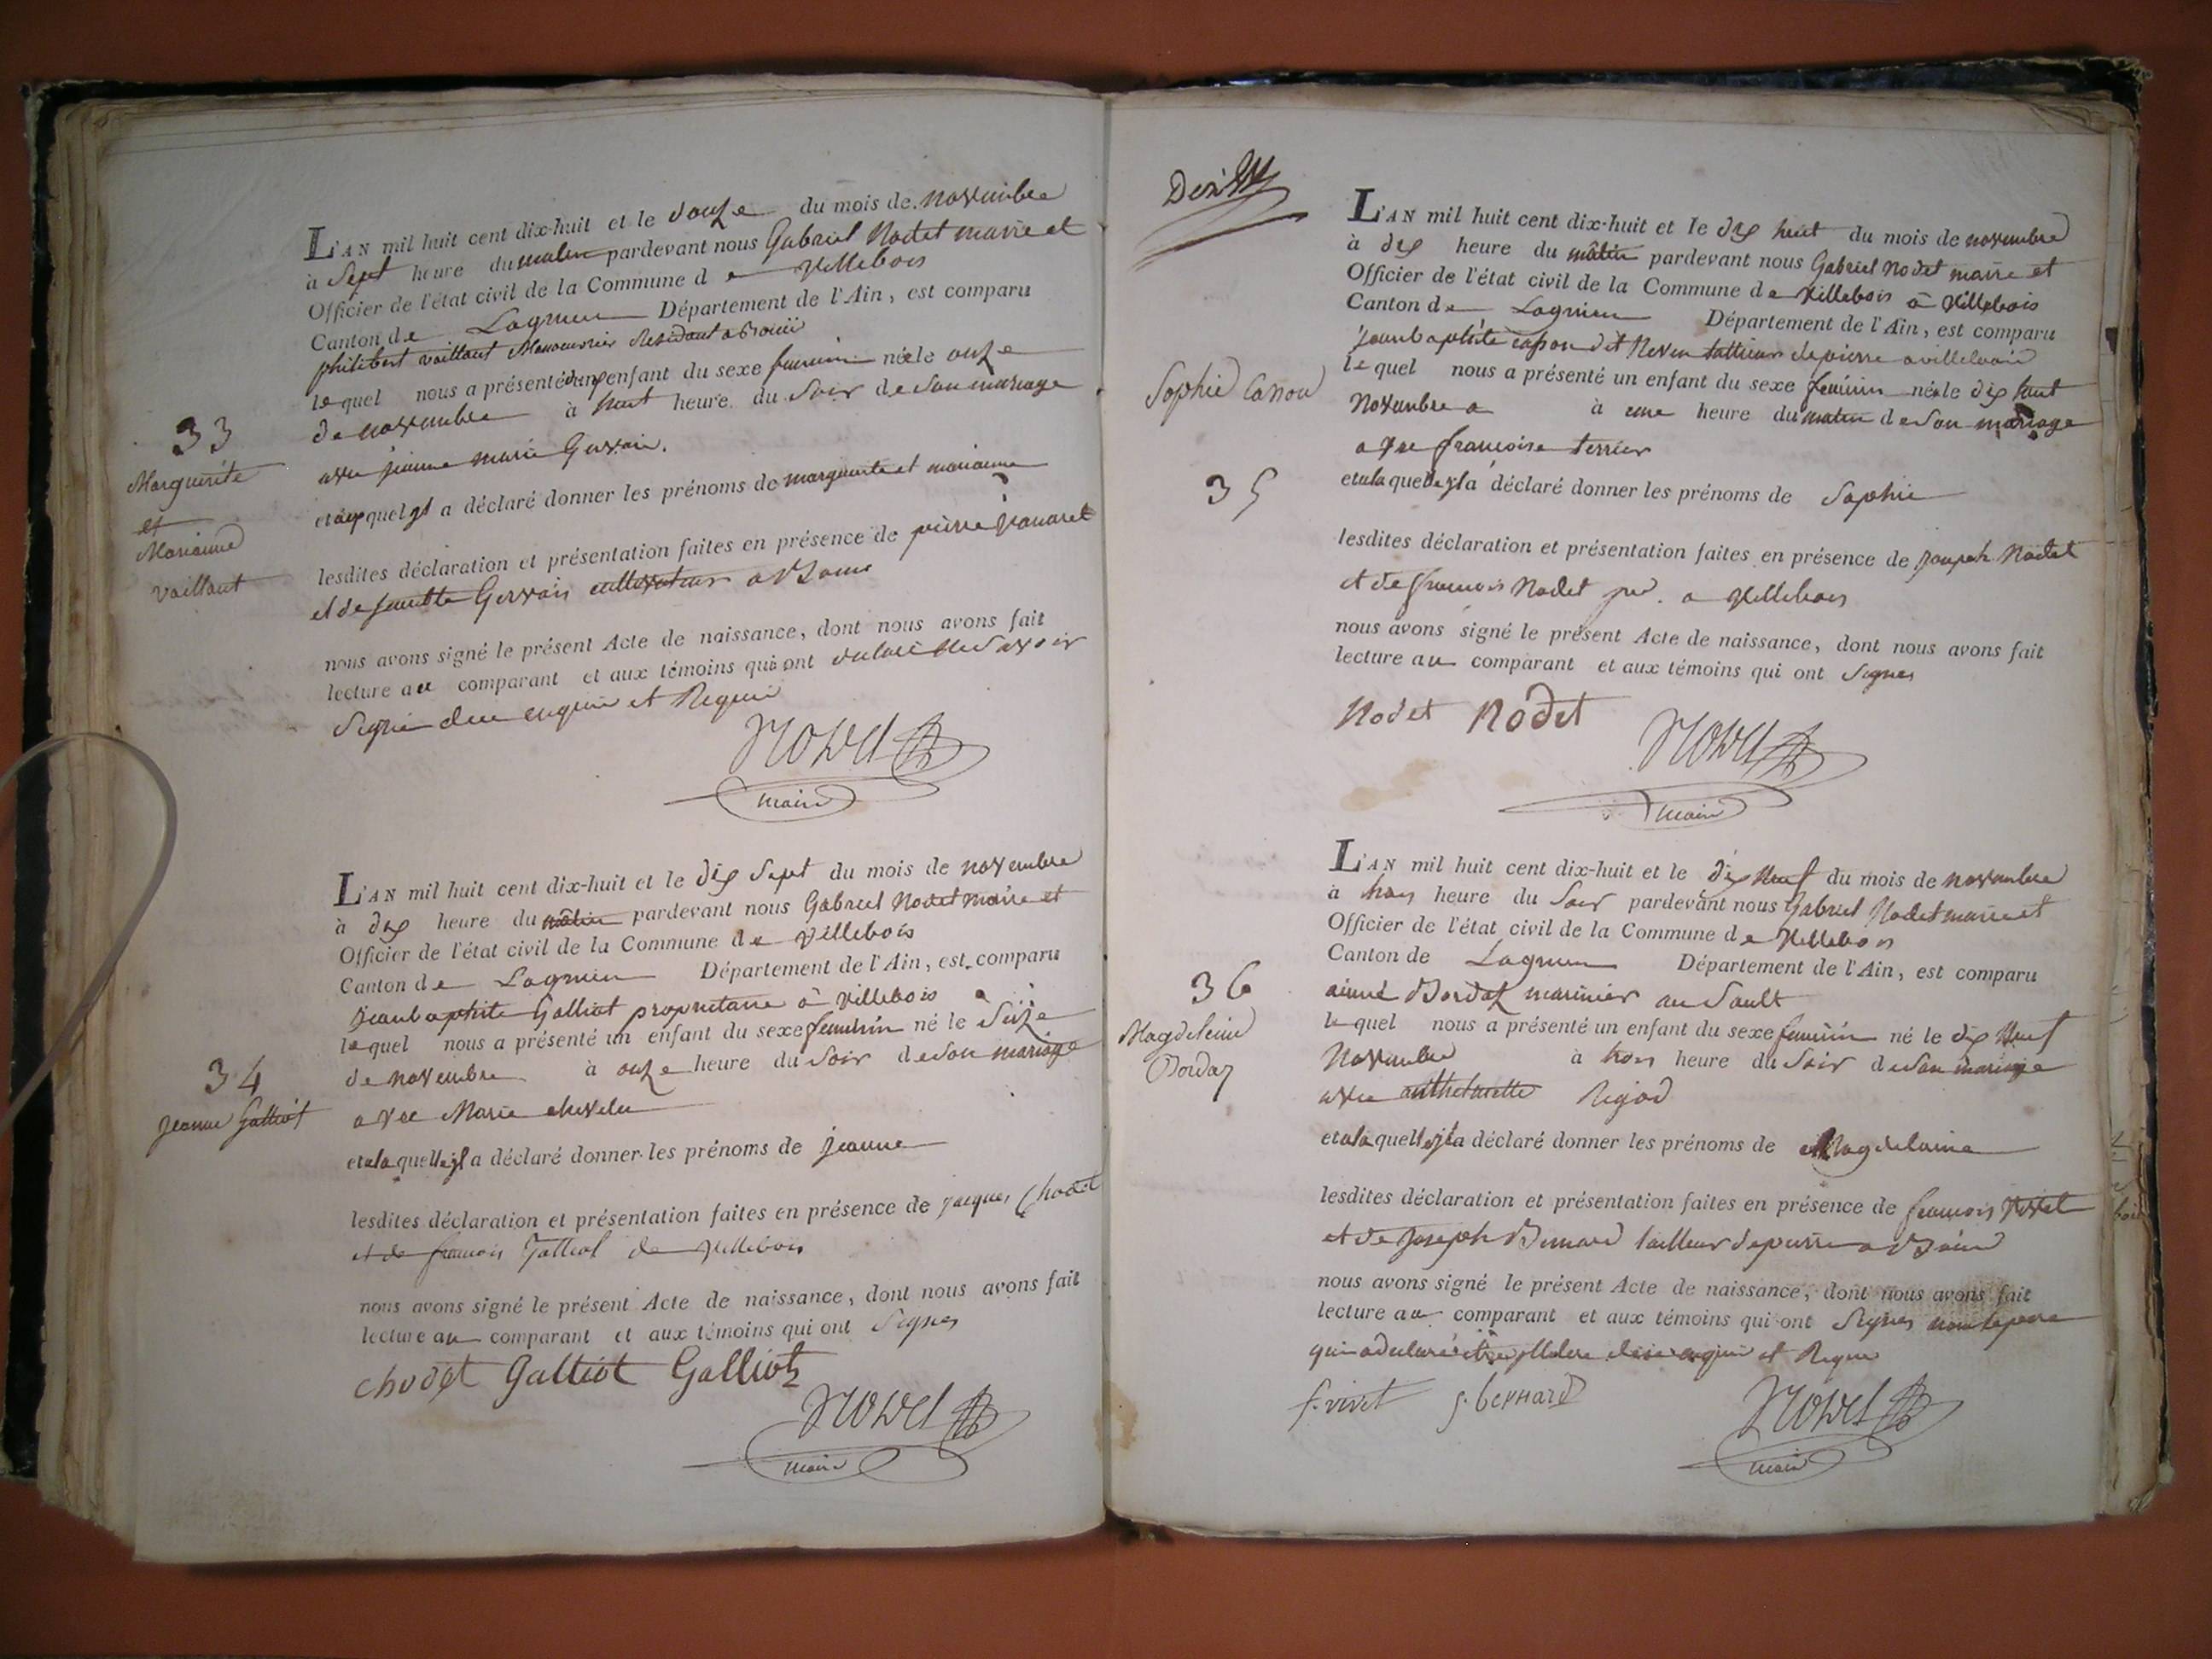 33
Marguerite
et
Marianne
vaillant
L'AN mil huit cent dix-huit et le douze du mois de novembre
à Sept heure du matin pardevant nous Gabriel Nodet maire et
Officier de l'état civil de la Commune de Villebois
Canton de Lagnieu Département de l'Ain, est comparu
philibert vaillant Manoeuvrier Résidant a
lequel nous a présenté enfant du sexe feminin née le onze
de novembre à huit heure du Soir de Son mariage
avec jeanne marie Gervais.
et quel a déclaré donner les prénoms de marguerite et marianne
lesdites déclaration et présentation faites en présence de pierre
et de Gervais cultivateur a
nous avons signé le présent Acte de naissance, dont nous avons fait
lecture au comparant et aux témoins qui ont déclaré ne Savoir
Signer de ce enquis et Requis
Nodet
maire
34
Jeanne Galliot
L'AN mil huit cent dix-huit et le dix Sept du mois de novembre
à dix heure du mâtin pardevant nous Gabriel Nodet maire et
Officier de l'état civil de la Commune de Villebois
Canton de Lagnieu Département de l'Ain, est comparu
jean baptiste Galliot propriétaire à villebois
lequel nous a présenté un enfant du sexe feminin né le Seize
de novembre à onze heure du Soir de Son mariage
avec Marie chevelu
et a la quelle il a déclaré donner les prénoms de jeanne
lesdites déclaration et présentation faites en présence de jacques Chodet
et de francois Galliot de Villebois
nous avons signé le présent Acte de naissance, dont nous avons fait
lecture au comparant et aux témoins qui ont Signes
chodet Galliot Galliot
Nodet
maire
Sophie Casson
35
L'AN mil huit cent dix-huit et le dix huit du mois de novembre
à dix heure du mâtin pardevant nous Gabriel Nodet maire et
Officier de l'état civil de la Commune de Villebois à Villebois
Canton de Lagnieu Département de l'Ain, est comparu
jean baptiste casson dit tailleur de pierre a villebois
lequel nous a présenté un enfant du sexe feminin née le dix huit
Novembre à une heure du matin de Son mariage
avec francoise terrier
et a la quelle il a déclaré donner les prénoms de Sophie
lesdites déclaration et présentation faites en présence de joseph Nodet
et de francois Nodet a Villebois
nous avons signé le présent Acte de naissance, dont nous avons fait
lecture au comparant et aux témoins qui ont Signes
Nodet Nodet
Nodet
maire
36
Magdeleine
Bordaz
L'AN mil huit cent dix-huit et le dix Neuf du mois de novembre
à trois heure du Soir pardevant nous Gabriel Nodet maire et
Officier de l'état civil de la Commune de Villebois
Canton de Lagnieu Département de l'Ain, est comparu
aimé Bordaz marinier au Sault
lequel nous a présenté un enfant du sexe feminin né le dix Neuf
Novembre à trois heure du Soir de Son mariage
avec anthelmette Rigod
et a la quelle il a déclaré donner les prénoms de Magdelaine
lesdites déclaration et présentation faites en présence de francois Vivet
et de Joseph Bernard tailleur de pierre a
nous avons signé le présent Acte de naissance, dont nous avons fait
lecture au comparant et aux témoins qui ont Signes non le pere
qui a declaré être illitere de ce enquis et Requis
f. vivet j. bernard
Nodet
maire